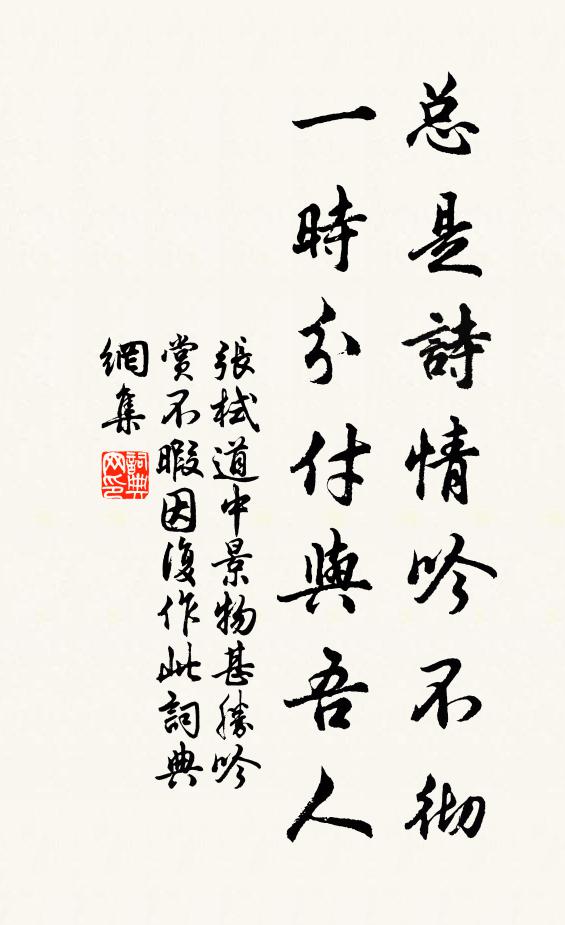 总是詩情吟不彻
一時分付與吾人
張栻道中景物甚勝吟
賞不暇因復作此詞典
網集
詞典
网印